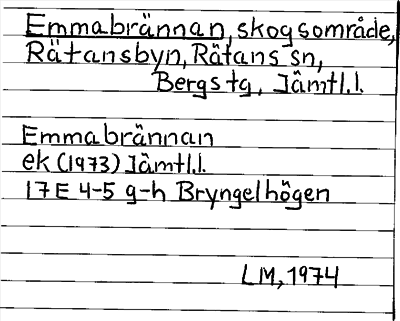 Emmabrännan, skogsområde,
Rätansbyn, Rätans sn,
Bergs tg, Jämtl.l.
Emmabrännan
ek (1973) Jämtl.l.
17E 4-5 g-h Bryngelhögen
LM, 1974